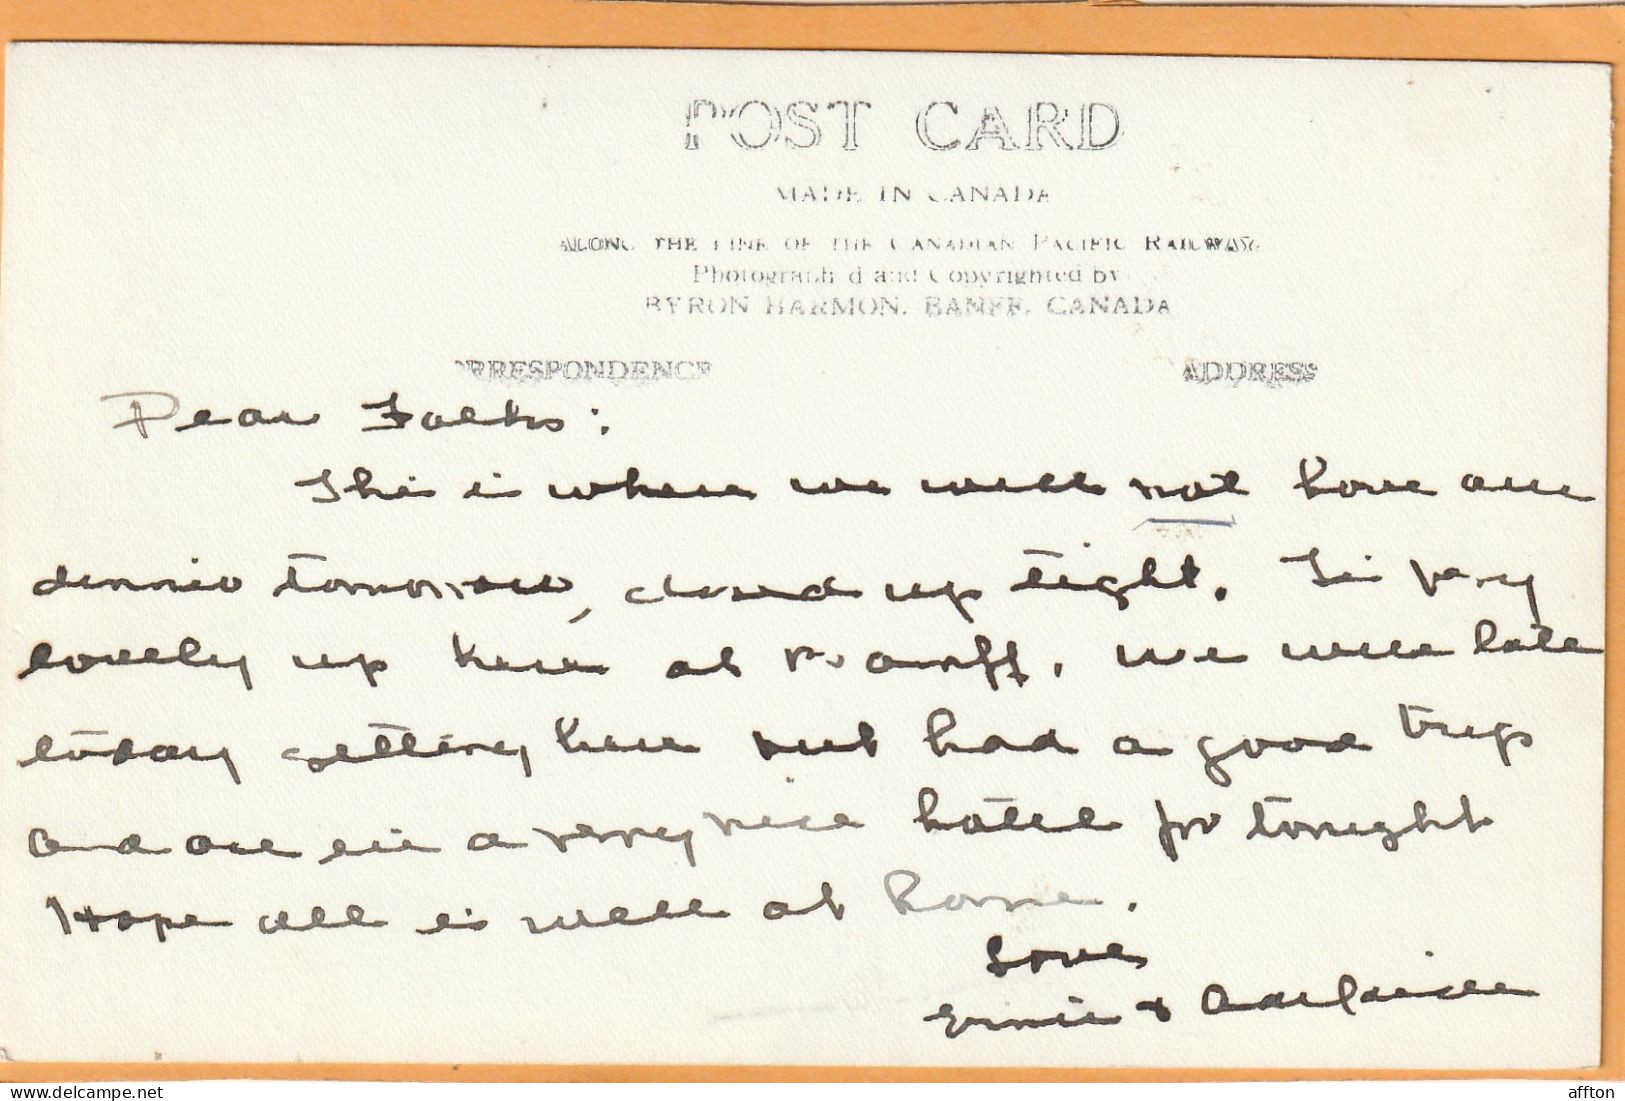 POST CARD
MADE IN CANADA
ALONG THE LINE OF THE CANADIAN PACIFIC RAILWAY
Photographed and Copyrighted by
BYRON HARMON, BANFF, CANADA
CORRESPONDENCE ADDRESS
Dear Folks:
This is where we will not have our
dinner tomorrow, closed up tight. Is very
lovely up here at Banff. We were late
today getting here but had a good trip
and are in a very nice hotel for tonight
Hope all is well at home.
Love
Ernie & Adelaide
affton